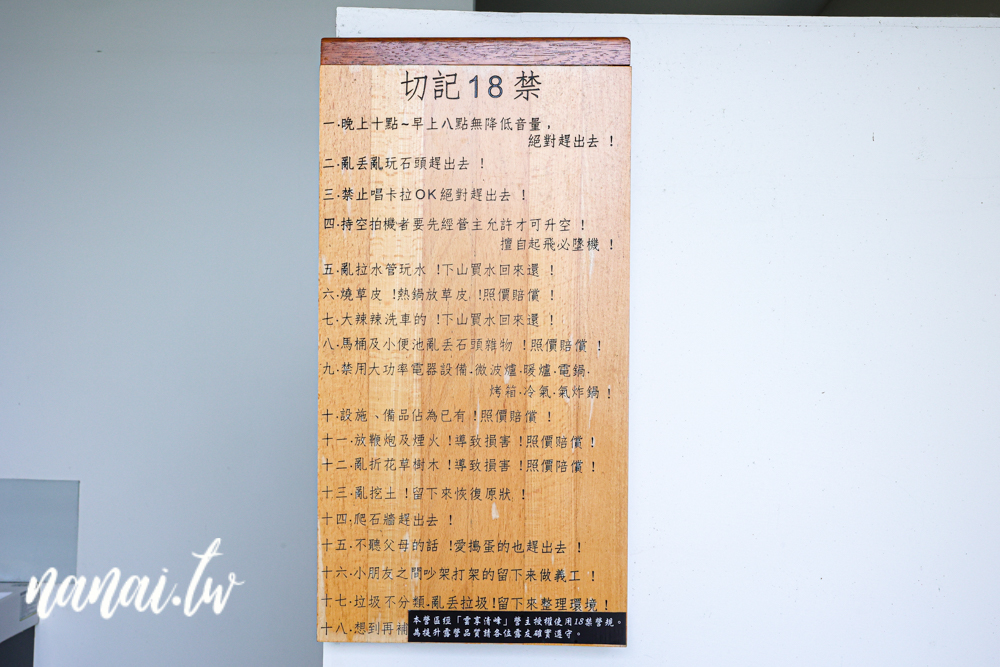 切記18禁
一.晚上十點~早上八點無降低音量，
絕對趕出去！
二.亂丟亂玩石頭趕出去！
三.禁止唱卡拉OK絕對趕出去！
四.持空拍機者要先經營主允許才可升空！
擅自起飛必墜機！
五.亂拉水管玩水！下山買水回來還！
六.燒草皮！熱鍋放草皮！照價賠償！
七.大辣辣洗車的！下山買水回來還！
八.馬桶及小便池亂丟石頭雜物！照價賠償！
九.禁用大功率電器設備.微波爐.暖爐.電鍋.
烤箱.冷氣.氣炸鍋！
十.設施、備品佔為已有！照價賠償！
十一.放鞭炮及煙火！導致損害！照價賠償！
十二.亂折花草樹木！導致損害！照價賠償！
十三.亂挖土！留下來恢復原狀！
十四.爬石牆趕出去！
十五.不聽父母的話！愛搗蛋的也趕出去！
十六.小朋友之間吵架打架的留下來做義工！
十七.垃圾不分類.亂丟垃圾！留下來整理環境！
十八.想到再補
本營區經「雲享清峰」營主授權使用18禁營規。
為提升露營品質請各位露友確實遵守。
nanai.tw